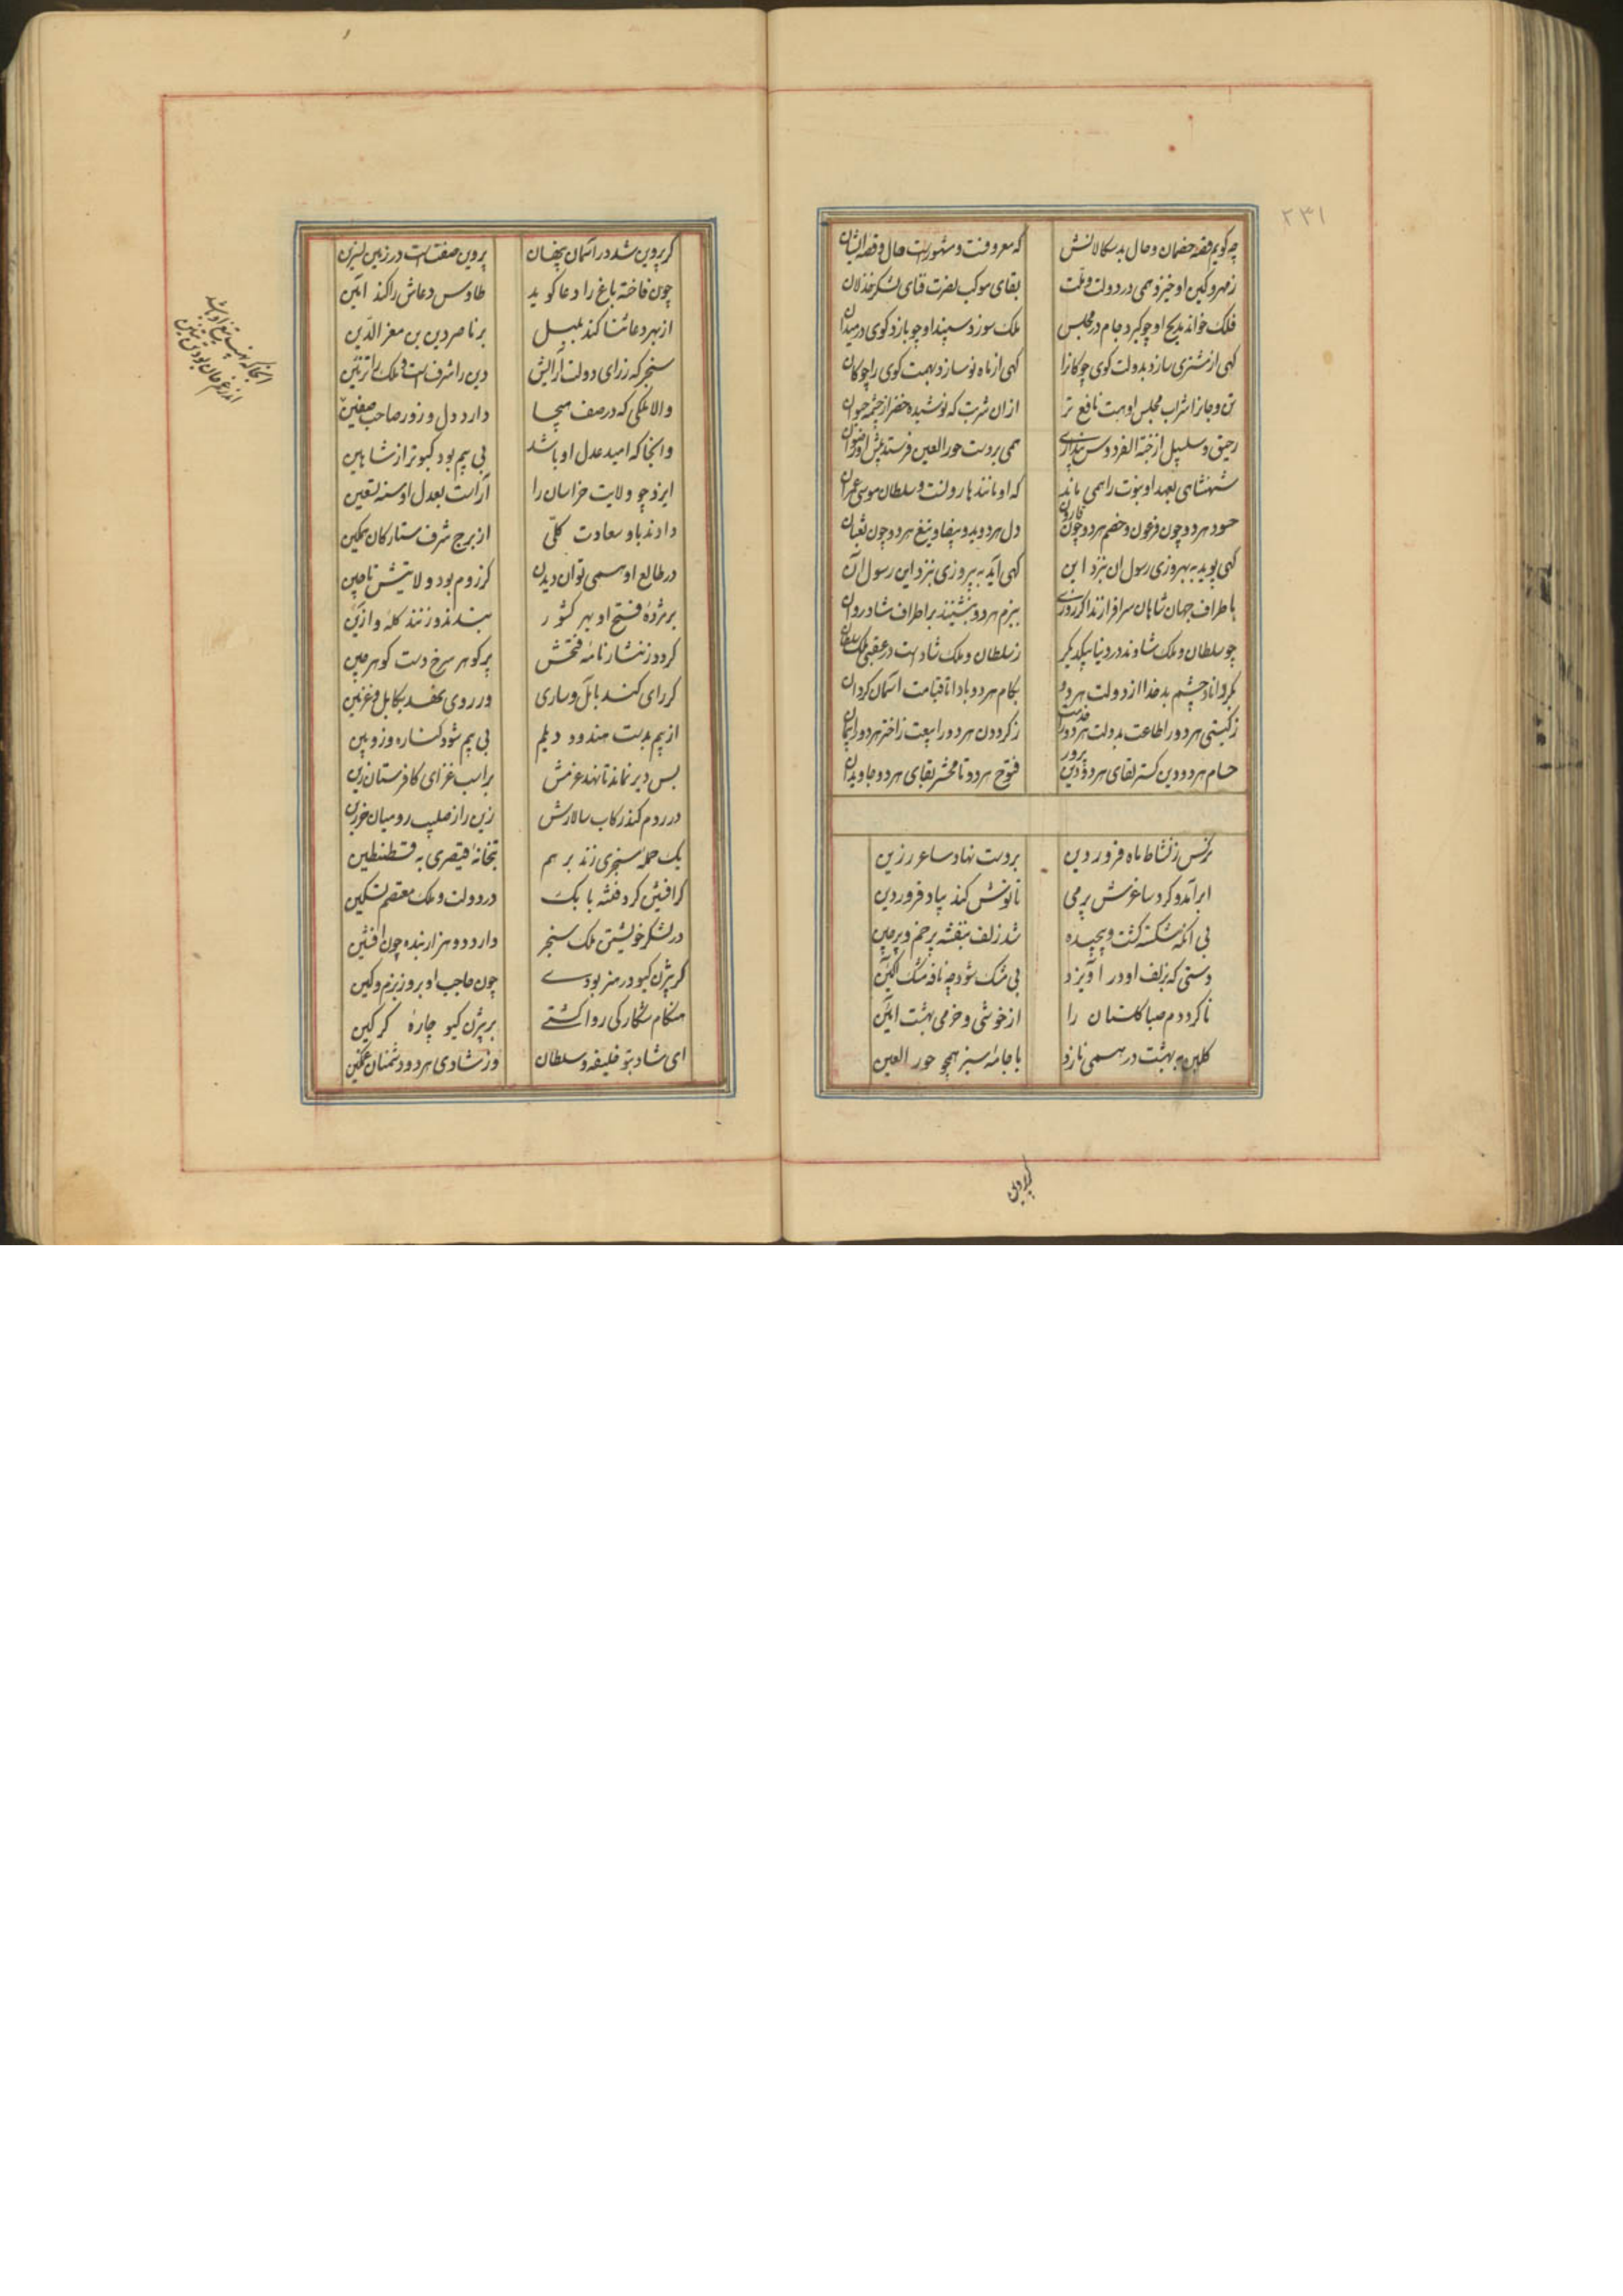 ۲۳۱
چه گویم قصه خصمان و حال بد سکالانش که معروفست و مشهورست حال و قصه ایشان
ز مهر و کین او خیزد همی در دولت و ملت بقای موکب نصرت فنای لشکر خذلان
فلک خواند مدیح او چو گیرد جام در مجلس ملک سوزد سپند او چو بازد گوی در میدان
گهی از مشتری سازد بدولت گوی چوکانرا گهی از ماه نو سازد بهمت گوی را چوکان
تن و جانرا شراب مجلس او هست نافع تر ازان شربت که نوشیده خضر از چشمه حیوان
رحیق و سلسبیل از جنة الفردوس پنداری همی بر دست حور العین فرستد پیش او رضوان
شهنشاهی بعهد او نبوت را همی ماند که او مانند هارونست و سلطان موسی عمران
حسود هر دو چون فرعون و خصم هر دو چون قارون دل هر دو ید و بیضا و تیغ هر دو چون ثعبان
گهی پوید به بهروزی رسول ان بنزد این گهی آید به پیروزی بنزد این رسول آن
باطراف جهان شاهان سرافرازند اگر روزی ببزم هر دو بنشینند بر اطراف شادروان
چو سلطان و ملک شادند در دنیا بیکدیگر ز سلطان و ملک شادست در عقبی ملک سلطان
بگرداناد چشم بد خدا از دولت هر دو بکام هر دو بادا تا قیامت آسمان گردان
ز گیتی هر دو را طاعت بدولت هر دو را خدمت ز گردون هر دو را بیعت ز اختر هر دو را پیمان
حسام هر دو دین گستر لقای هر دو دین پرور فتوح هر دو تا محشر بقای هر دو جاویدان
نرگس ز نشاط ماه فروردین بر دست نهاد ساغر زرین
ابر آمد و کرد ساغرش پر می تا نوش کند بیاد فروردین
بی انکه شکسته گشت و پیچیده شد زلف بنفشه پر خم و پر چین
دستی که بزلف او در آویزد بی مشک شود چو نافه مشک آگین
تا کرد دم صبا گلستان را از خوشی و خرمی بهشت آیین
گلبن به بهشت در همی نازد با جامه سبز همچو حور العین
گر پروین
گر پروین شد در آسمان پنهان پروین صفتست در زمین نسرین
چون فاخته باغ را دعا گوید طاوس دعاش را کند آمین
از بهر دعا ثنا کند بلبل بر ناصر دین بن معز الدین
سنجر که ز رای دولت آرایش دین را شرف است و ملک را تزئین
والا ملکی که در صف هیجا دارد دل و زور صاحب صفین
وانجا که امید عدل او باشد بی بیم بود کبوتر از شاهین
ایزد چو ولایت خراسان را آراست بعدل او سنه تسعین
دادند باو سعادت کلی از برج شرف ستارگان تمکین
در طالع او همی توان دیدن کز روم بود ولایتش تا چین
بر مژده فتح او بهر کشور بندند و زنند کله و آزین
گردد ز نثار نامه فتحش پر گوهر سرخ دست گوهر چین
گر رای کند بآمل و ساری ور روی نهد بکابل و غزنین
از بیم بدست هندو و دیلم بی بیم شود کتاره و زوبین
بس دیر نماند تا نهد عزمش بر اسب غزای کافرستان زین
در روم کند رکاب سالارش زین را ز صلیب رومیان خرزین
یک حمله سنجری زند بر هم بتخانه قیصری به قسطنطین
گر افشین کرد فتنه بابک در دولت و ملک معتصم تسکین
در لشکر خویشتن ملک سنجر دارد دو هزار بنده چون افشین
گر بیژن گیو در هنر بودے چون حاجب او بروز بزم و کین
هنگام شکار کی روا گشتے بر بیژن گیو چاره گرگین
ای شاد بتو خلیفه و سلطان وز شادی هر دو دشمنان غمگین
انجا که نهیب تیغ او باشد